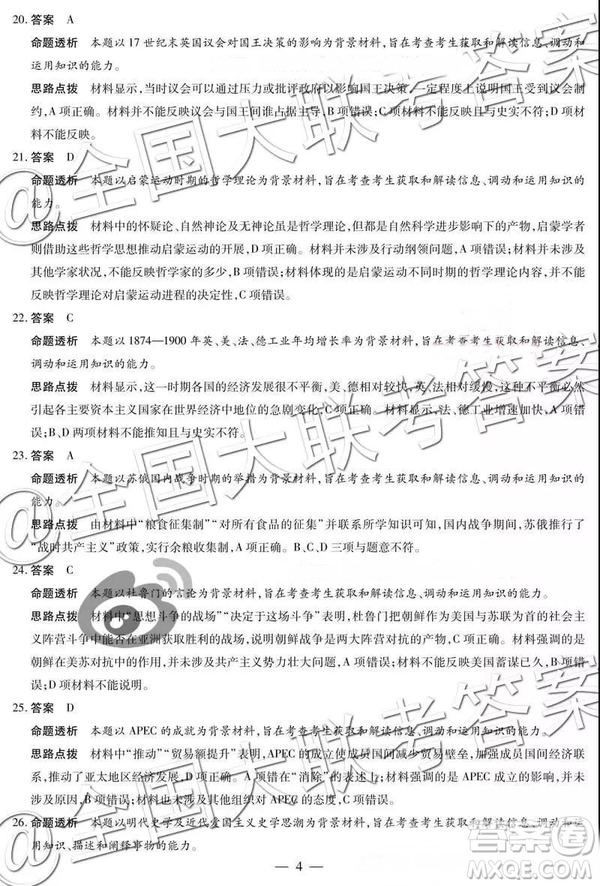 20. 答案 A
命题透析 本题以 17 世纪末英国议会对国王决策的影响为背景材料,旨在考查考生获取和解读信息、调动和
运用知识的能力。
思路点拨 材料显示,当时议会可以通过压力或批评政府以影响国王决策,一定程度上说明国王受到议会制
约,A 项正确。材料并不能反映议会与国王间谁占据主导,B 项错误;C 项材料不能反映且与史实不符;D 项
材料不能反映。
21. 答案 D
命题透析 本题以启蒙运动时期的哲学理论为背景材料,旨在考查考生获取和解读信息、调动和运用知识的
能力。
思路点拨 材料中的怀疑论、自然神论及无神论虽是哲学理论,但都是自然科学进步影响下的产物,启蒙学者
则借助这些哲学思想推动启蒙运动的开展,D 项正确。材料并未涉及行动纲领问题,A 项错误;材料并未涉及
其他学家状况,不能反映哲学家的多少,B 项错误;材料体现的是启蒙运动不同时期的哲学理论,不能反
映哲学理论对启蒙运动进程的决定性,C 项错误。
22. 答案 C
命题透析 本题以 1874—1900 年英、美、法、德工业年均增长率为背景材料,旨在考查考生获取和解读信息、
调动和运用知识的能力。
思路点拨 材料显示,这一时期各国的经济发展很不平衡,美、德相对较快,英、法相对缓慢,这种不平衡必然
引起各主要资本主义国家在世界经济中地位的急剧变化,C 项正确。材料显示,法、德工业增速加快,A 项错
误;B、D 两项材料不能推知且与史实不符。
23. 答案 A
命题透析 本题以苏俄国内战争时期的举措为背景材料,旨在考查考生获取和解读信息、调动和运用知识的
能力。
思路点拨 由材料中“粮食征集制”“对所有食品的征集”并联系所学知识可知,国内战争时期,苏俄推行了
“战时共产主义”政策,实行余粮收集制,A 项正确。B、C、D 三项与题意不符。
24. 答案 C
命题透析 本题以杜鲁门的言论为背景材料,旨在考查考生获取和解读信息、调动和运用知识的能力。
思路点拨 材料中“思想斗争的战场”“决定于这场斗争”表明,杜鲁门把朝鲜作为美国与苏联为首的社会主
义阵营斗争中能否在亚洲获取胜利的战场,说明朝鲜战争是两大阵营对抗的产物,C 项正确。材料强调的是
朝鲜在美苏对抗中的地位,并未涉及共产主义势力壮大问题,A 项错误;B 项材料不能反映美国蓄谋已久,排
除;D 项材料不能说明。
25. 答案 D
命题透析 本题以 APEC 的成就为背景材料,旨在考查考生获取和解读信息、调动和运用知识的能力。
思路点拨 材料中“推动”“贸易额提升”表明,APEC 成立后不断减少贸易壁垒,加强成员国间经济联系,推
动了亚太地区经济发展,D 项正确。A 项错误在“消除”的表述上;材料强调的是 APEC 成立的影响,并非背
景,B 项错误;材料也未涉及其他组织对 APEC 的态度,C 项错误。
26. 命题透析 本题以明代史学及近代爱国主义史学思潮为背景材料,旨在考查考生获取和解读信息、调动和运
用知识、描述和阐释事物的能力。
— 4 —
@全国大联考答案
@全国大联考答案
答案圈
MXQE.COM